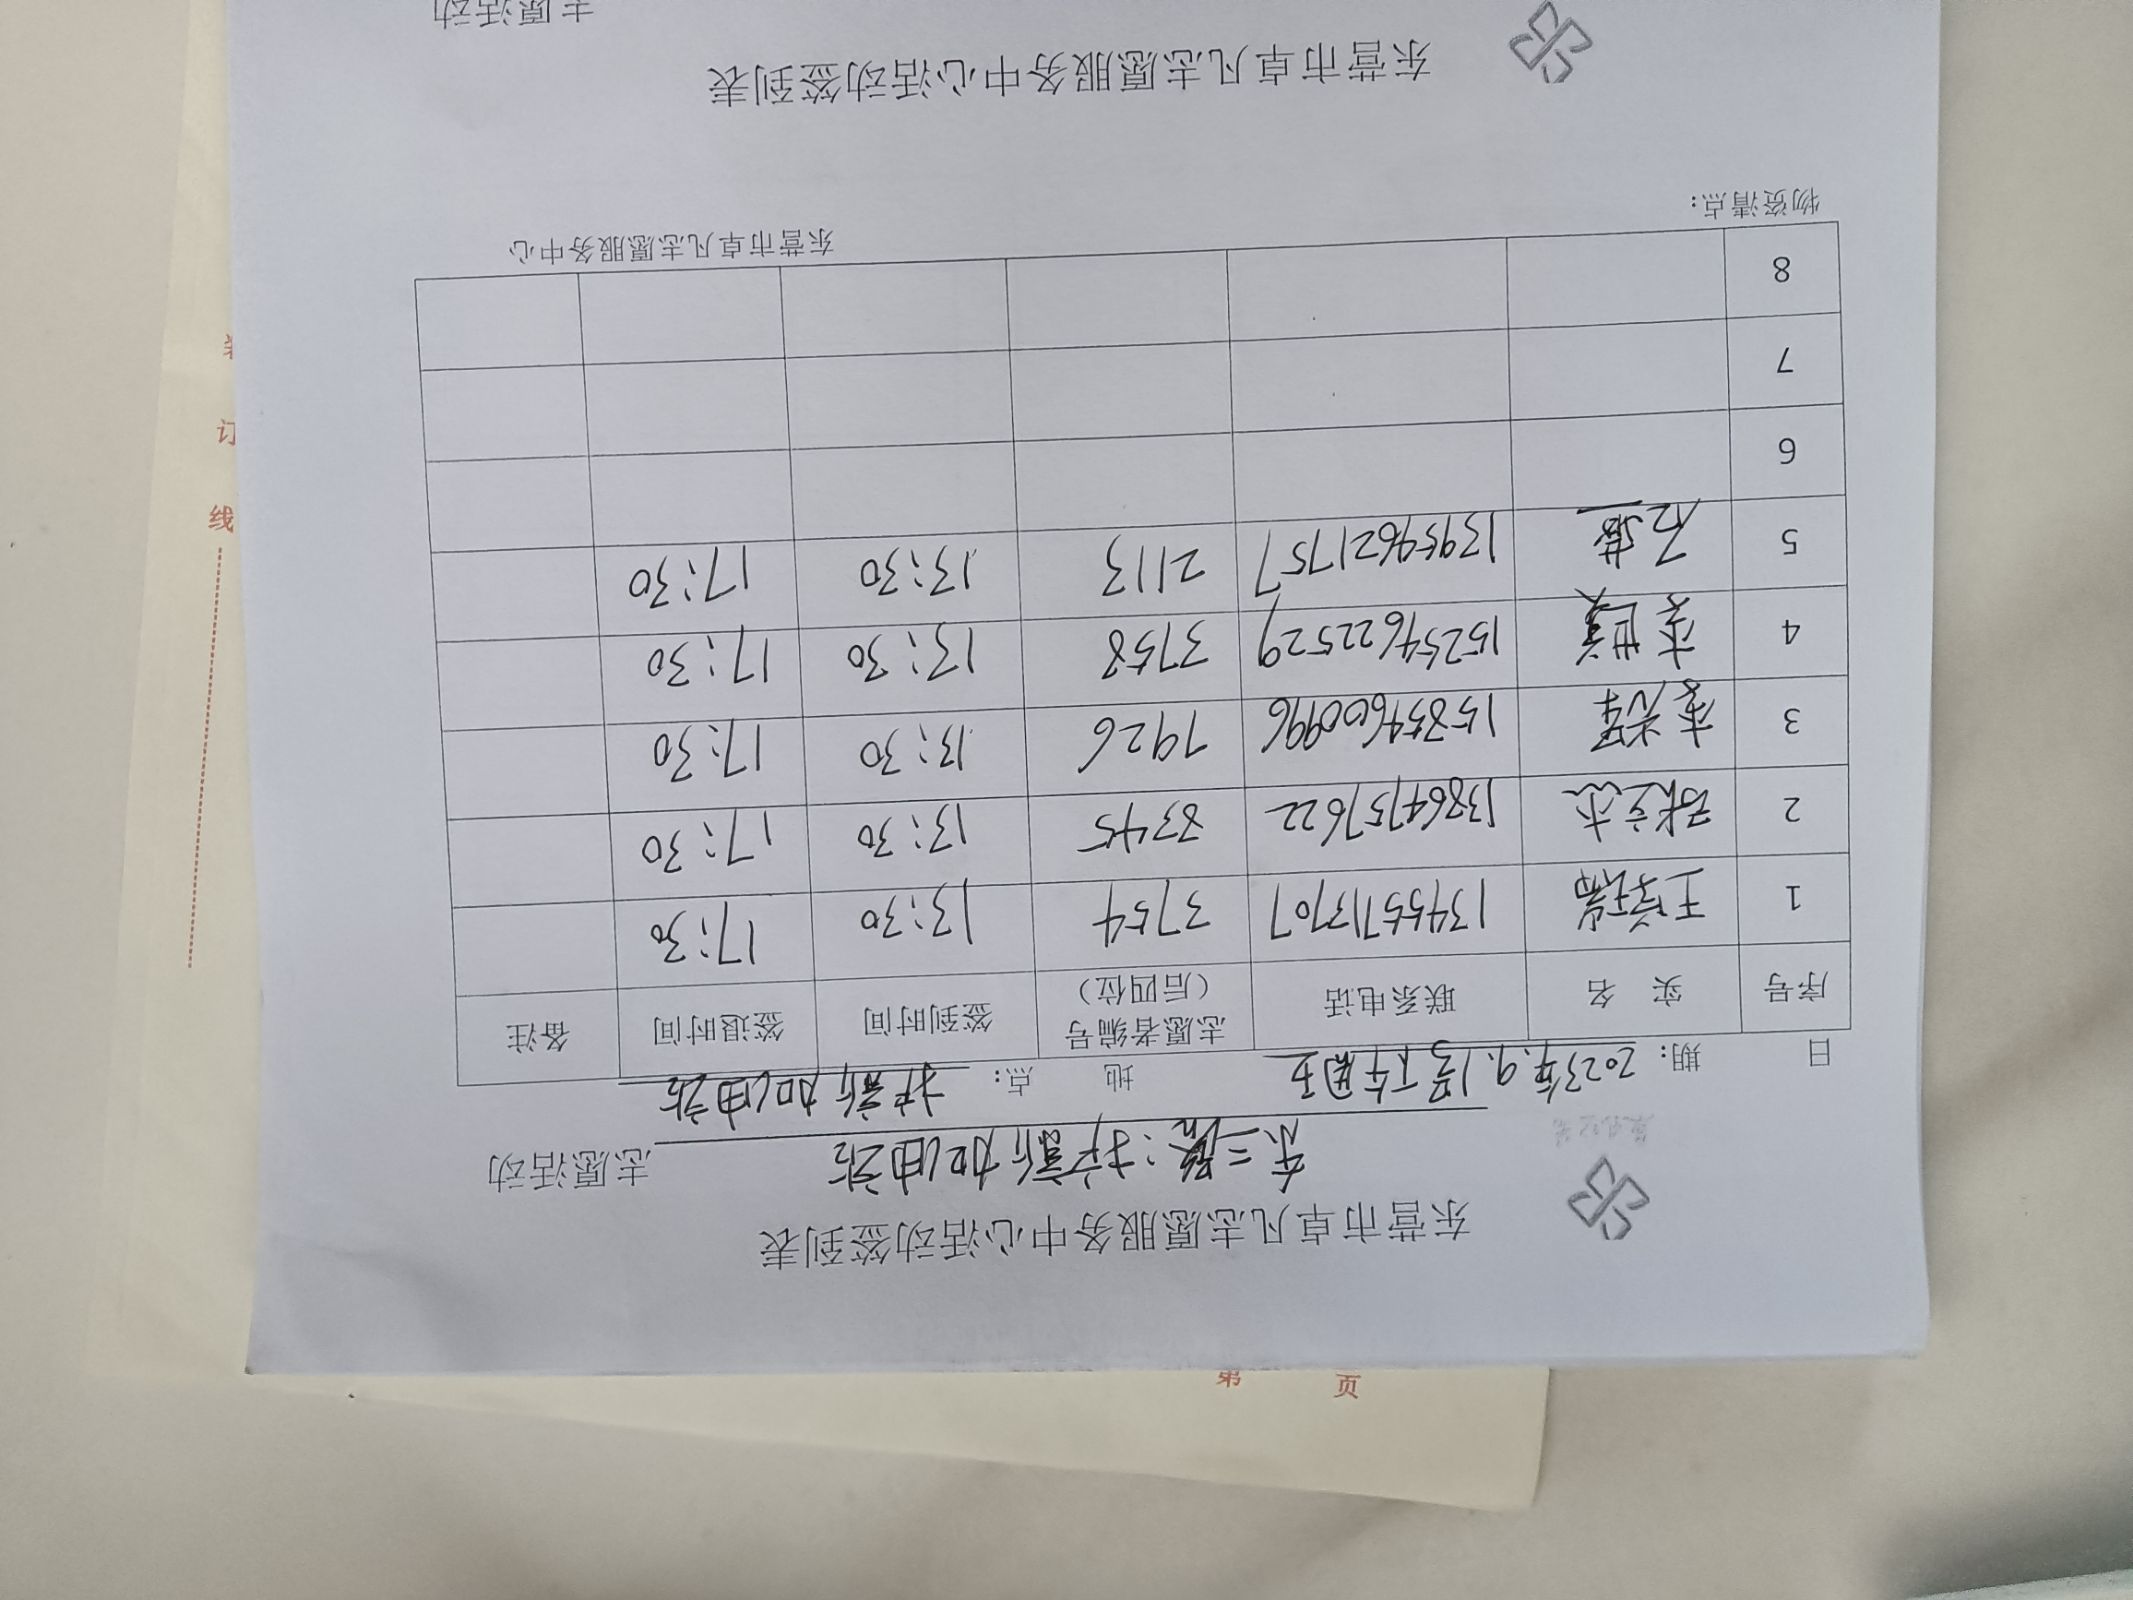 东营市卓凡志愿服务中心活动签到表
东二路:护新加油站 志愿活动
日 期: 2023年.9.1号下午周五 地 点: 护新加油站
序号 实 名 联系电话 志愿者编号(后四位) 签到时间 签退时间 备注
1 13455713707 3754 13:30 17:30
2 张立杰 13864757622 8345 13:30 17:30
3 15854600996 7926 13:30 17:30
4 李世美 15254622529 3758 13:30 17:30
5 13959621757 2113 13:30 17:30
6
7
8
物资清点: 东营市卓凡志愿服务中心
东营市卓凡志愿服务中心活动签到表
志愿活动
装
订
线
第 页